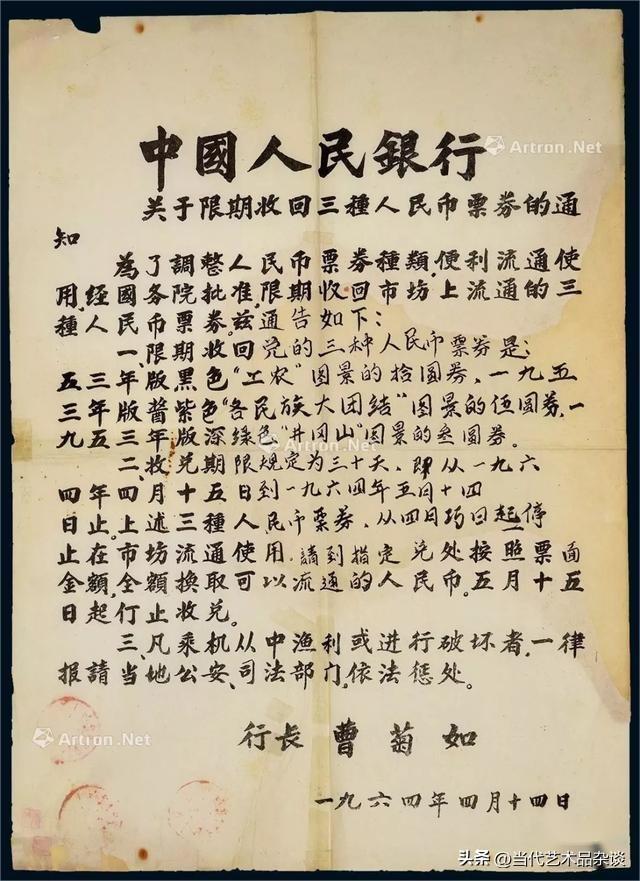 中國人民銀行
关于限期收回三種人民币票券的通
知
為了調整人民币票券種類,便利流通使
用,经國务院批准,限期收回市坊上流通的三
種人民币票券。兹通告如下:
一、限期收回兑的三种人民币票券是:
五三年版黑色"工农"图景的拾圆券、一九五
三年版酱紫色"各民族大团结"图景的伍圆券,一
九五三年版深綠色"井冈山"图景的叁圆券。
二、收兑期限規定为三十天,即从一九六
四年四月十五日到一九六四年五月十四
日止。上述三種人民币票券,从四月15日起停
止在市坊流通使用,請到指定兑处按照票面
金額,全額换取可以流通的人民币。五月十五
日起仃止收兑。
三、凡乘机从中渔利或进行破坏者,一律
报請当地公安、司法部门,依法惩处。
行长 曹菊如
一九六四年四月十四日
Artron.Net
Artron.Net
Artron.Net
Artron.Net
头条 @当代艺术品杂谈